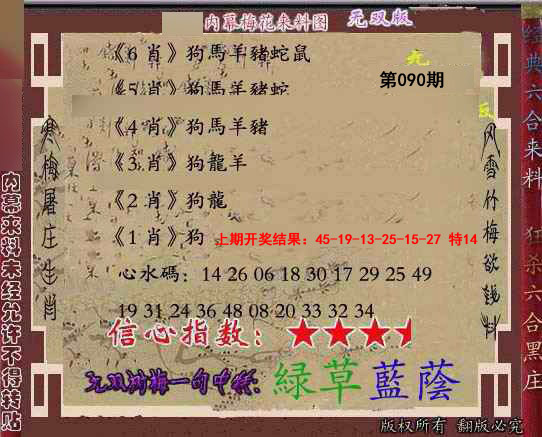 内幕梅花来料图 无双版
《6 肖》狗馬羊豬蛇鼠
第090期
《5 肖》狗馬羊豬蛇
《4 肖》狗馬羊豬
《3 肖》狗龍羊
《2 肖》狗龍
《1 肖》狗 上期开奖结果：45-19-13-25-15-27 特14
心水碼：14 26 06 18 30 17 29 25 49
19 31 24 36 48 08 20 33 32 34
信心指数：
无双梅一句中特：綠草藍蔭
寒梅屠庄生肖
风雪竹梅欲钱料
内幕来料未经允许不得转贴
经典六合来料 狂杀六合黑庄
版权所有 翻版必究